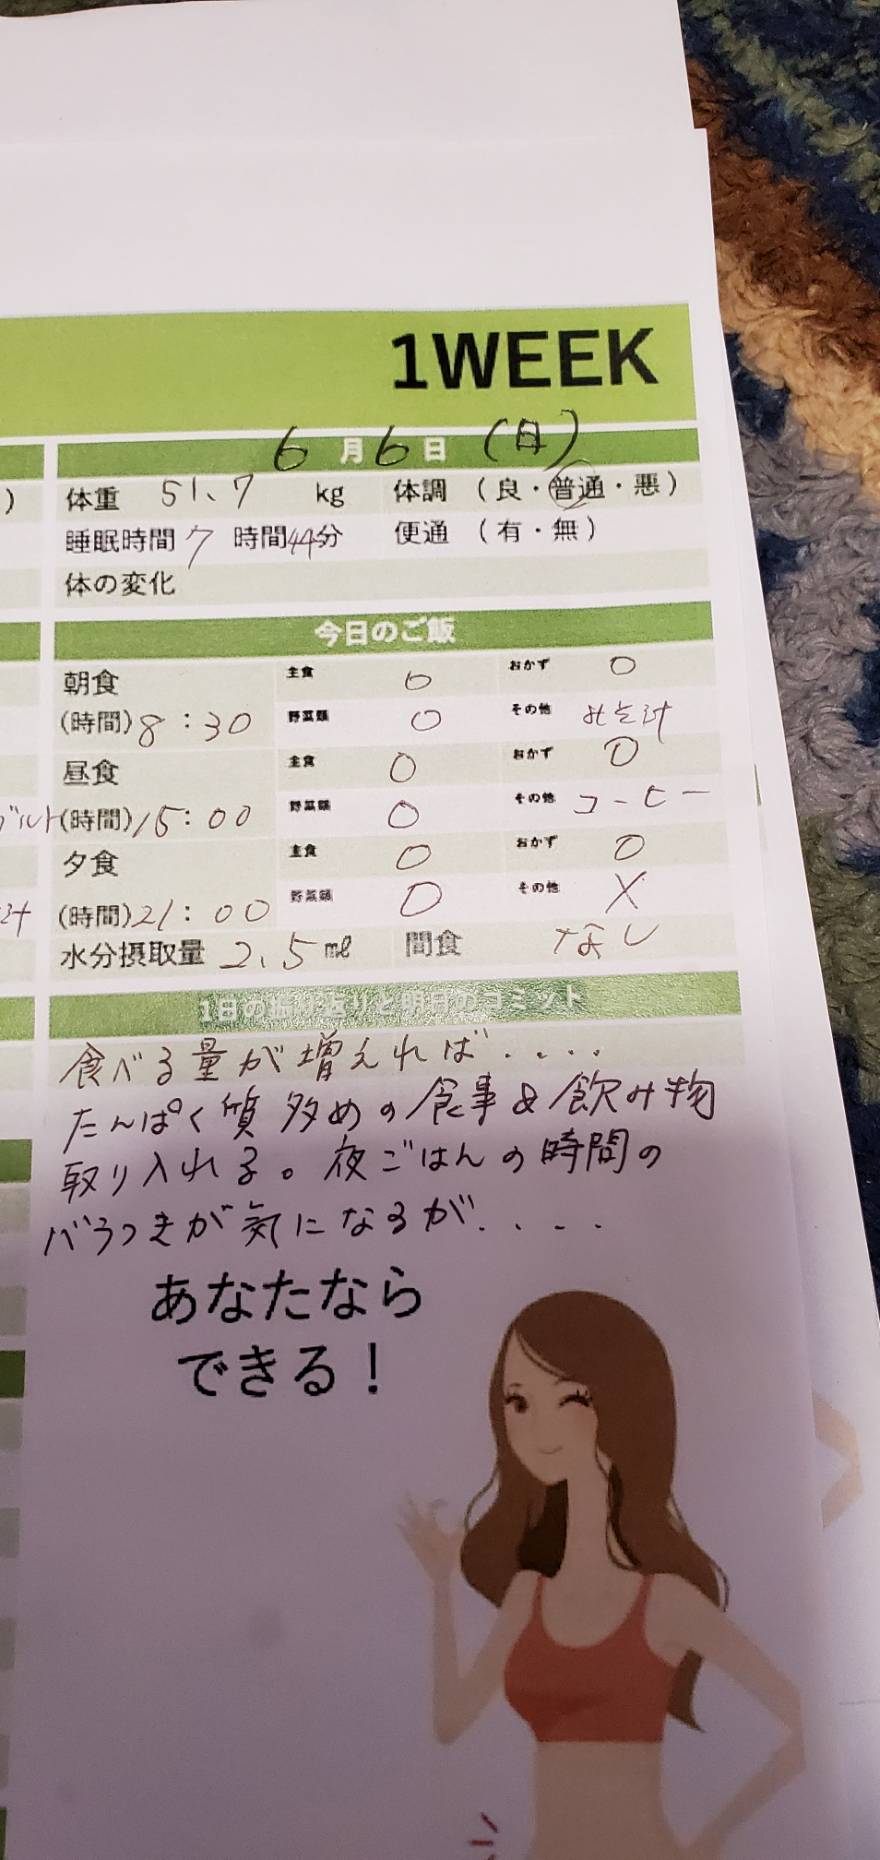 1WEEK
6月6日 (日)
)
体重 51.7 kg 体調 (良・普通・悪)
睡眠時間 7 時間44分 便通 (有・無)
体の変化
今日のご飯
朝食 主食 ○ おかず ○
(時間) 8:30 野菜類 ○ その他 みそ汁
昼食 主食 ○ おかず ○
グルト(時間) 15:00 野菜類 ○ その他 コーヒー
夕食 主食 ○ おかず ○
汁 (時間) 21:00 野菜類 ○ その他 ×
水分摂取量 2.5 ㎖ 間食 なし
1日の振り返りと明日のコミット
食べる量が増えれば....
たんぱく質多めの食事&飲み物
取り入れる。夜ごはんの時間の
バラつきが気になるが....
あなたなら
できる!